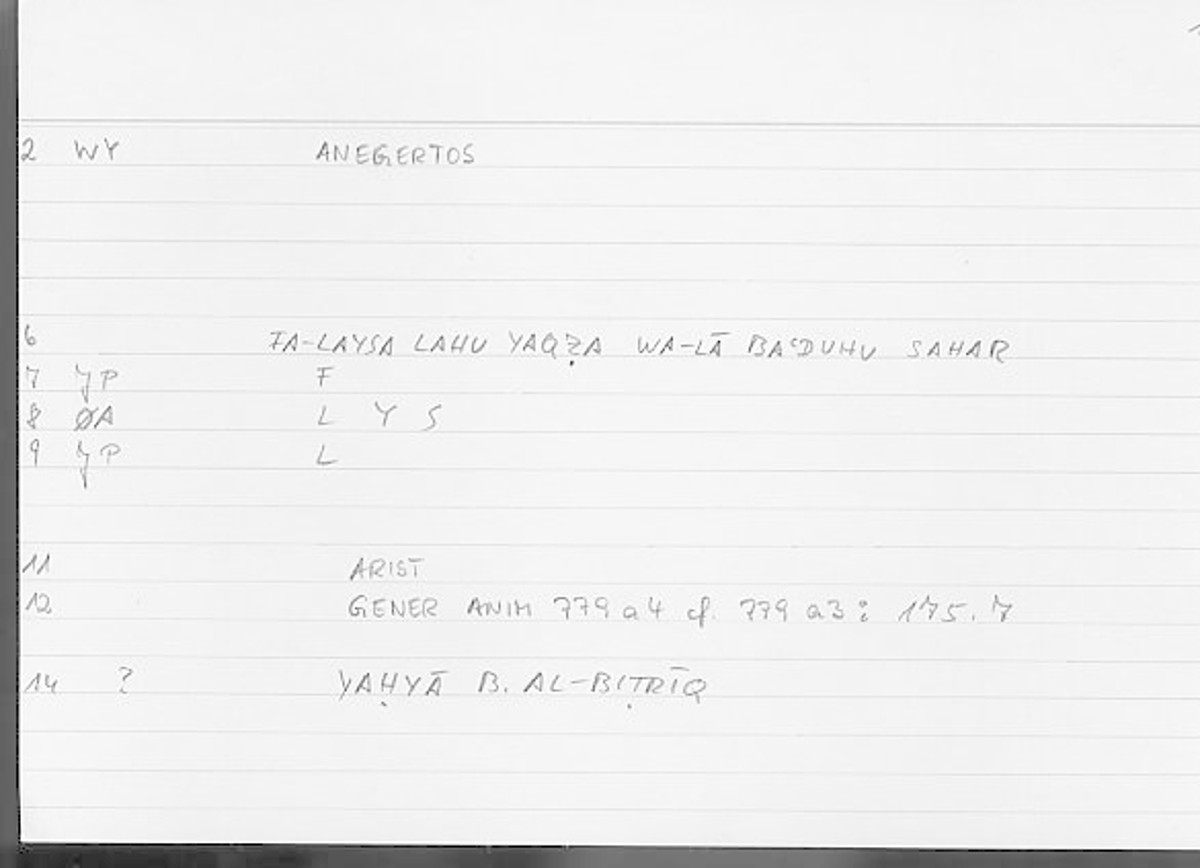 2 WY ANEGERTOS
6 FA-LAYSA LAHU YAQẒA WA-LĀ BAʿDUHU SAHAR
7 JP F
8 ØA L Y S
9 JP L
11 ARIST
12 GENER ANIM 779 a 4 cf. 779 a3 : 175.7
14 ? YAḤYĀ B. AL-BIṬRĪQ